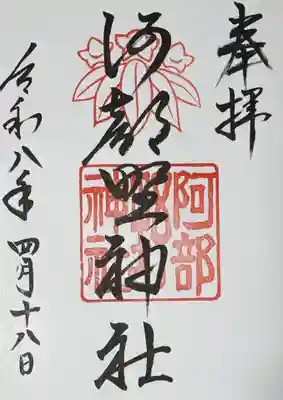 奉拝
阿部野神社
阿部野神社
令和八年 四月十八日